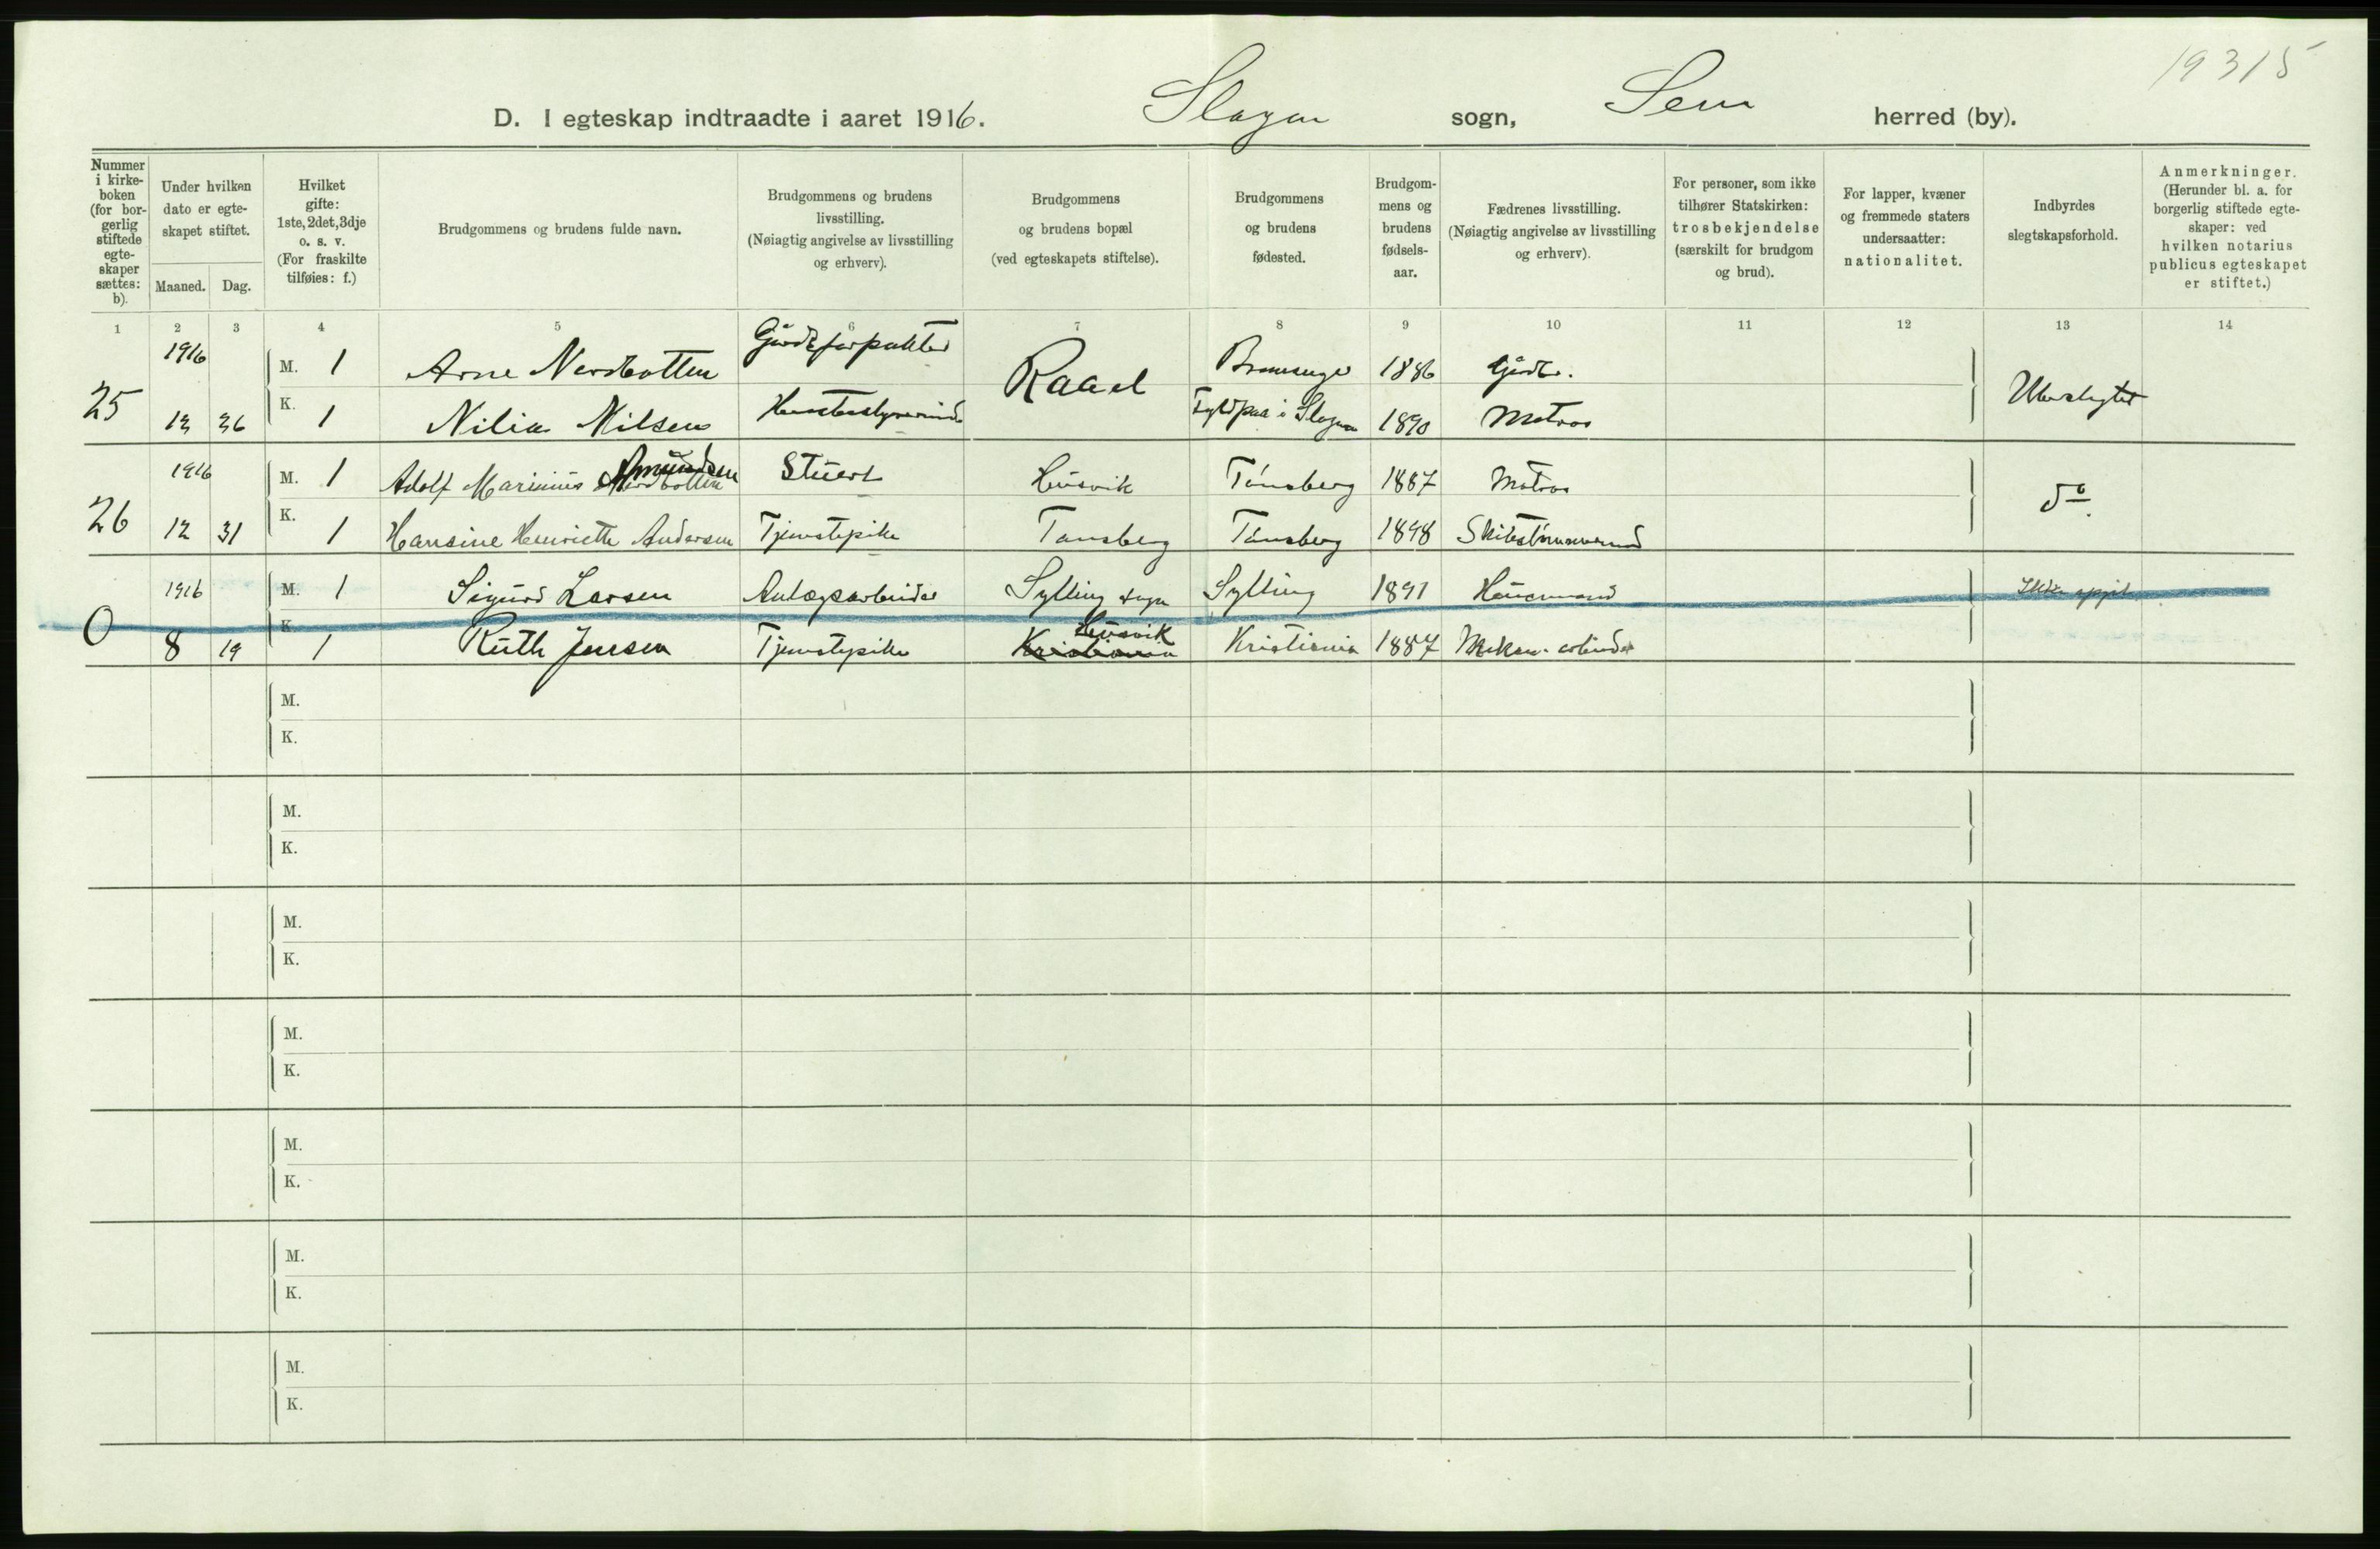 19315
D. I egteskap indtraadte i aaret 1916. Slagen sogn, Sem herred (by).
Nummer i kirke-boken (for bor-gerlig stiftede egte-skaper sættes: b).
Under hvilken dato er egte-skapet stiftet.
Maaned. Dag.
Hvilket gifte: 1ste, 2det, 3dje o. s. v. (For fraskilte tilføies: f.)
Brudgommens og brudens fulde navn.
Brudgommens og brudens livsstilling. (Nøiagtig angivelse av livsstilling og erhverv).
Brudgommens og brudens bopæl (ved egteskapets stiftelse).
Brudgommens og brudens fødested.
Brudgom-mens og brudens fødsels-aar.
Fædrenes livsstilling. (Nøiagtig angivelse av livsstilling og erhverv).
For personer, som ikke tilhører Statskirken: trosbekjendelse (særskilt for brudgom og brud).
For lapper, kvæner og fremmede staters undersaatter: nationalitet.
Indbyrdes slegtskapsforhold.
Anmerkninger. (Herunder bl. a. for borgerlig stiftede egte-skaper: ved hvilken notarius publicus egteskapet er stiftet.)
1 2 3 4 5 6 7 8 9 10 11 12 13 14
1916 M. 1 Arne Nordbotten Gårdsforpakter Raael 1886 Gårdbr.
25 12 26 K. 1 Nilia Nilsen Husbestyrerinde i Slagen 1890 Matros Ubeslegtet
1916 M. 1 Adolf Marinius Nordbotten Amundsen Stuert Husvik Tønsberg 1887 Matros
26 12 31 K. 1 Hansine Henriette Andersen Tjenestepike Tønsberg Tønsberg 1898 Skibstømmermand do
1916 M. 1 Sigurd Larsen Anlægsarbeider Sylling sogn Sylling 1891 Husmand Ikke opgit
0 8 19 K. 1 Ruth Jensen Tjenestepike Kristiania Husvik Kristiania 1887 Mekan. arbeider
M.
K.
M.
K.
M.
K.
M.
K.
M.
K.
M.
K.
M.
K.